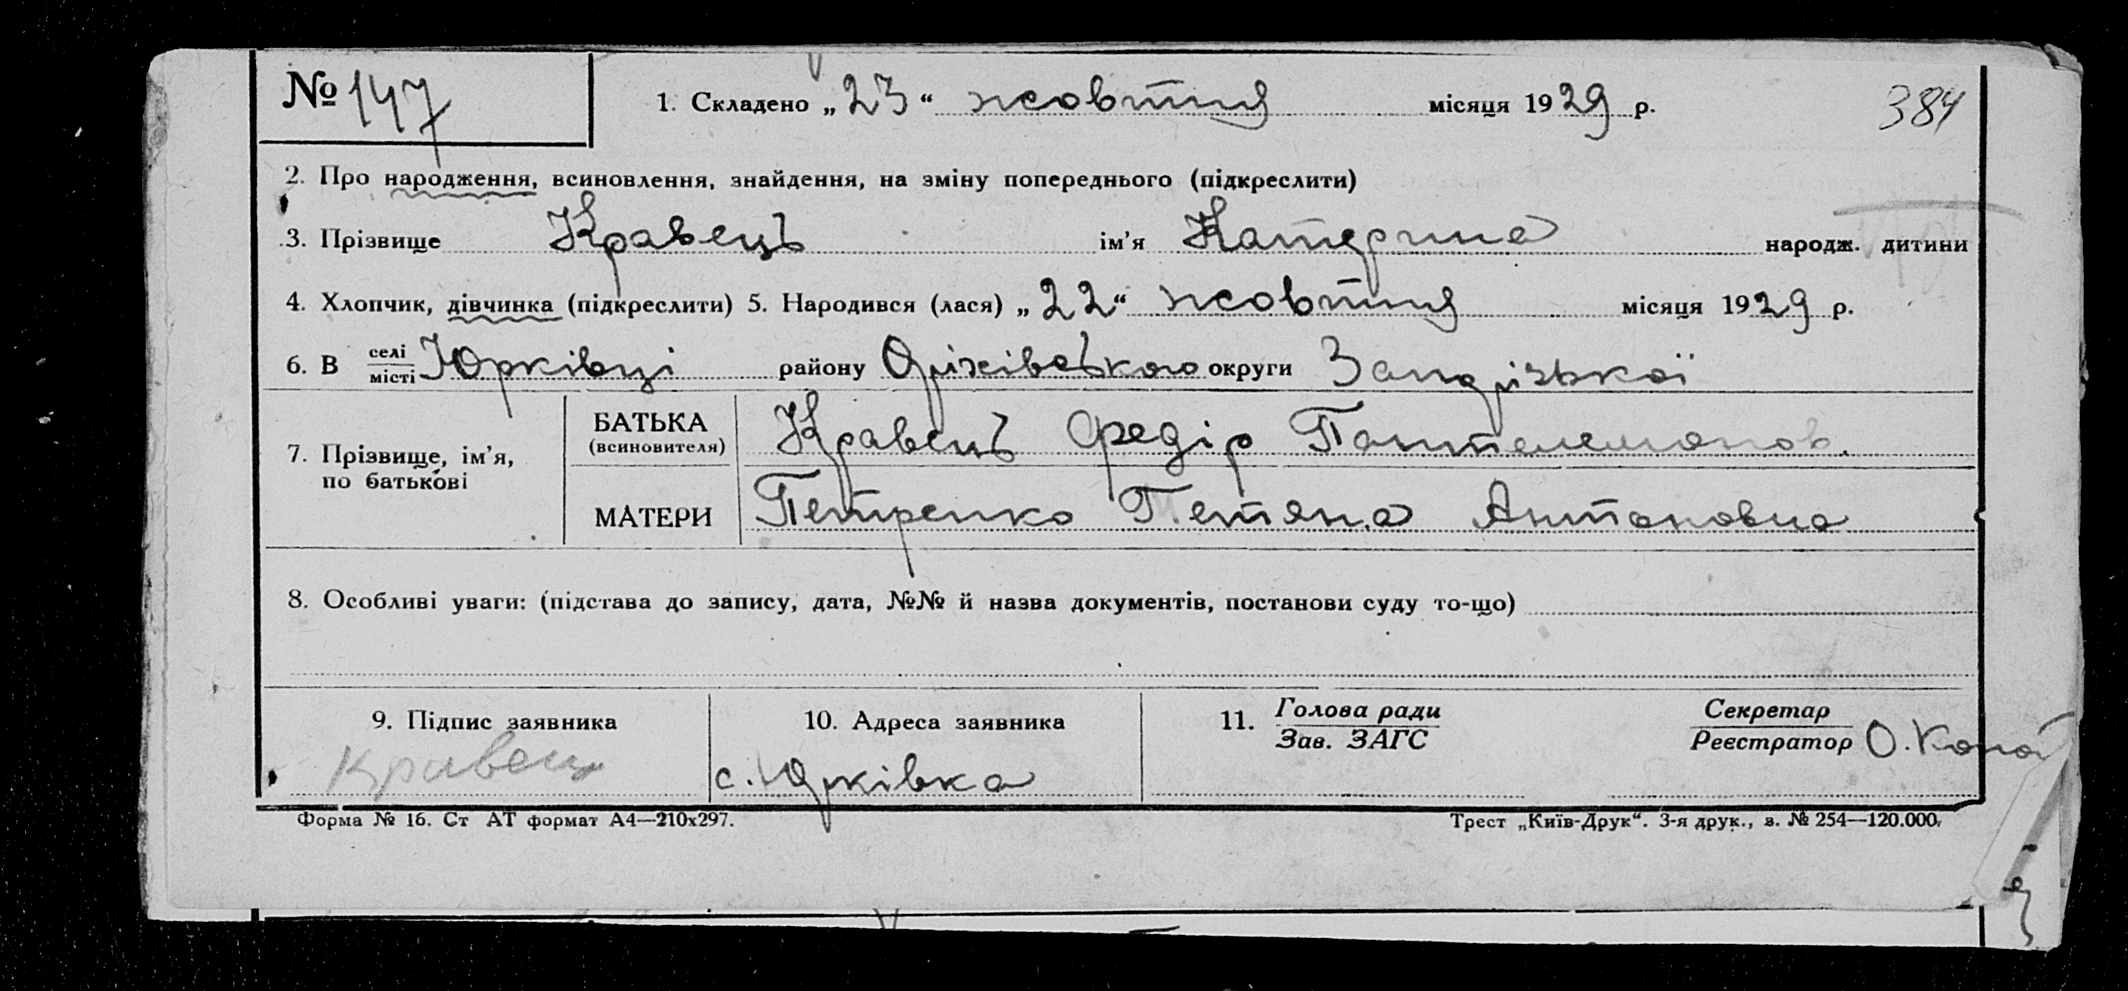 № 147 1. Складено „23“ жовтня місяця 1929 р. 384
2. Про народження, всиновлення, знайдення, на зміну попереднього (підкреслити)
3. Прізвище Кравець ім’я Катерина народж. дитини
4. Хлопчик, дівчинка (підкреслити) 5. Народився (лася) „22“ жовтня місяця 1929 р.
6. В селі місті Юрківці району Оріхівського округи Запорізької
7. Прізвище, ім’я, по батькові
БАТЬКА (всиновителя) Кравець Федір Пантелемонов.
МАТЕРИ Петренко Тетяна Антоновна
8. Особливі уваги: (підстава до запису, дата, №№ й назва документів, постанови суду то-що)
9. Підпис заявника 10. Адреса заявника 11. Голова ради Зав. ЗАГС Секретар Реєстратор
Кравець с. Юрківка
Форма № 16. Ст АТ формат А4—210х297. Трест „Київ-Друк“. 3-я друк., з. № 254—120.000.